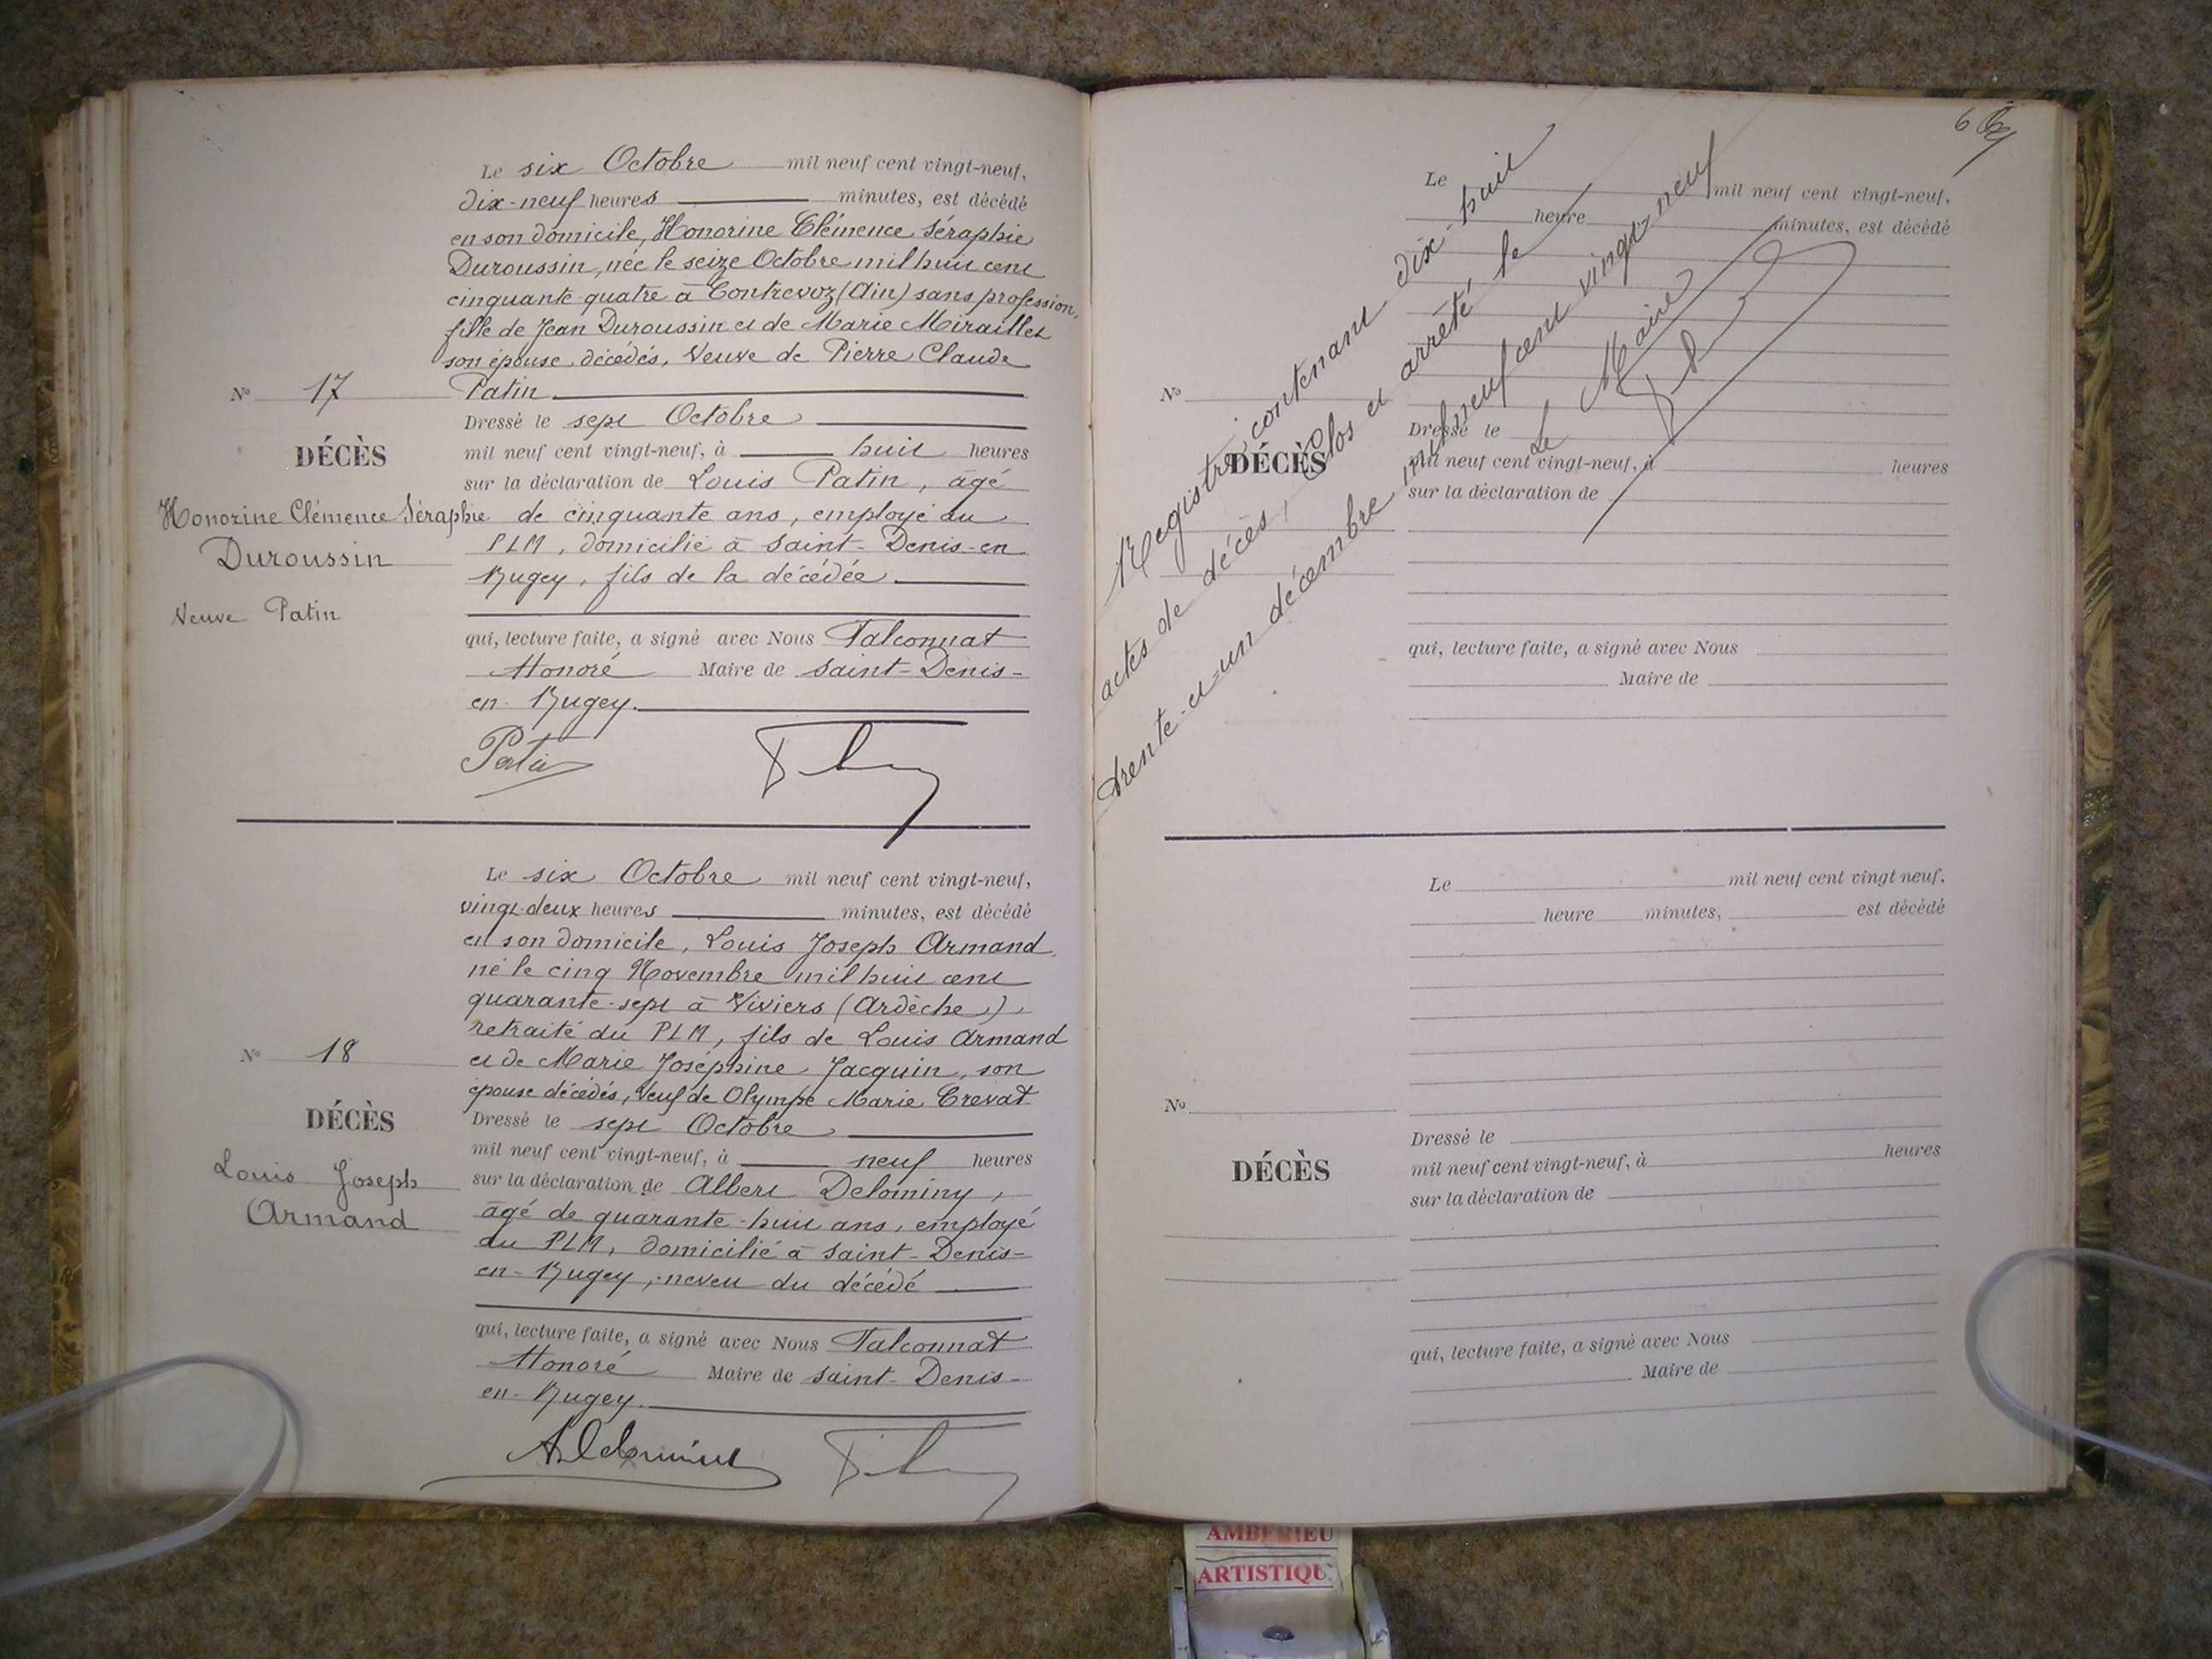 Le six Octobre mil neuf cent vingt-neuf,
dix-neuf heures minutes, est décédé
en son domicile, Honorine Clémence Séraphie
Duroussin, née le seize Octobre mil huit cent
cinquante-quatre à Contrevoz (Ain) sans profession,
fille de Jean Duroussin et de Marie Miraillet
son épouse, décédés, Veuve de Pierre Claude
Patin
No 17
DÉCÈS
Honorine Clémence Séraphie
Duroussin
Veuve Patin
Dressé le sept Octobre
mil neuf cent vingt-neuf, à huit heures
sur la déclaration de Louis Patin, âgé
de cinquante ans, employé au
PLM, domicilié à Saint-Denis-en
Bugey, fils de la décédée.
qui, lecture faite, a signé avec Nous Falconnat
Honoré Maire de Saint-Denis-
en-Bugey.
Patin
Le six Octobre mil neuf cent vingt-neuf,
vingt-deux heures minutes, est décédé
en son domicile, Louis Joseph Armand,
né le cinq Novembre mil huit cent
quarante-sept à Viviers (Ardèche),
retraité du PLM, fils de Louis Armand
et de Marie Joséphine Jacquin, son
épouse décédés, Veuf de Olympe Marie Crevat
No 18
DÉCÈS
Louis Joseph
Armand
Dressé le sept Octobre
mil neuf cent vingt-neuf, à neuf heures
sur la déclaration de Albert Delominy,
âgé de quarante-huit ans, employé
au PLM, domicilié à Saint-Denis-
en-Bugey, neveu du décédé
qui, lecture faite, a signé avec Nous Falconnat
Honoré Maire de Saint-Denis-
en-Bugey.
Registre, contenant dix-huit
actes de décès, Clos et arrêté le
trente-et-un décembre mil neuf cent vingt-neuf
Le Maire
Le mil neuf cent vingt-neuf,
heure minutes, est décédé
No
DÉCÈS
Dressé le
mil neuf cent vingt-neuf, à heures
sur la déclaration de
qui, lecture faite, a signé avec Nous
Maire de
Le mil neuf cent vingt neuf,
heure minutes, est décédé
No
DÉCÈS
Dressé le
mil neuf cent vingt-neuf, à heures
sur la déclaration de
qui, lecture faite, a signé avec Nous
Maire de
AMBERIEU
ARTISTIQU